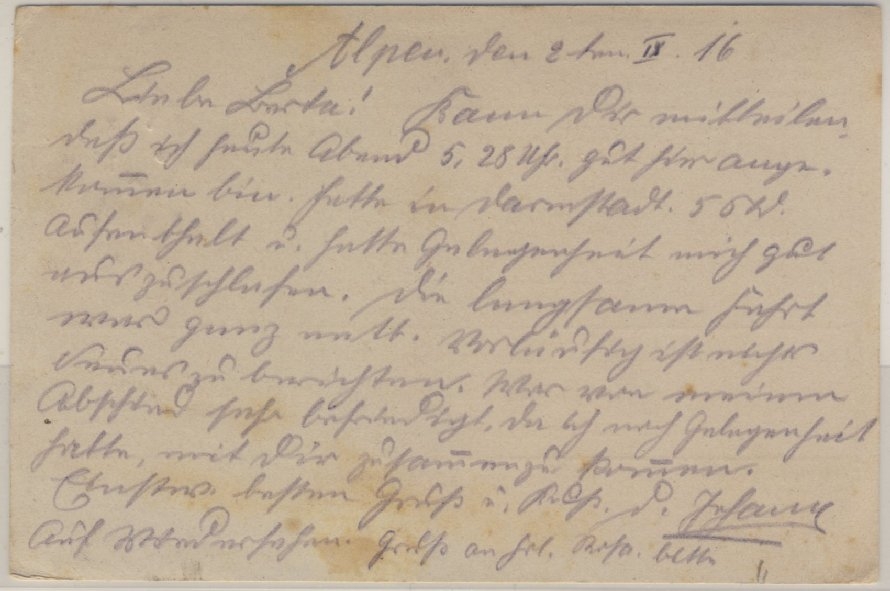 Alpen, den 2ten IX. 16
Liebe Berta! Kann Dir mitteilen,
daß ich heute Abend 5,28 Uhr. gut hier ange-
kommen bin. hatte in Darmstadt. 5 Std.
Aufenthalt u. hatte Gelegenheit mich gut
auszuschlafen. Die langsame Fahrt
war ganz nett. Vorläufig ist nichts
Neues zu berichten. War von meinem
Abschied sehr befriedigt, da ich noch Gelegenheit
hatte, mit Dir zusammenzu kommen.
besten Gruß u. Kuß. d. Johann
Auf Wiedersehen. Gruß an Frl. Rosa. bitte